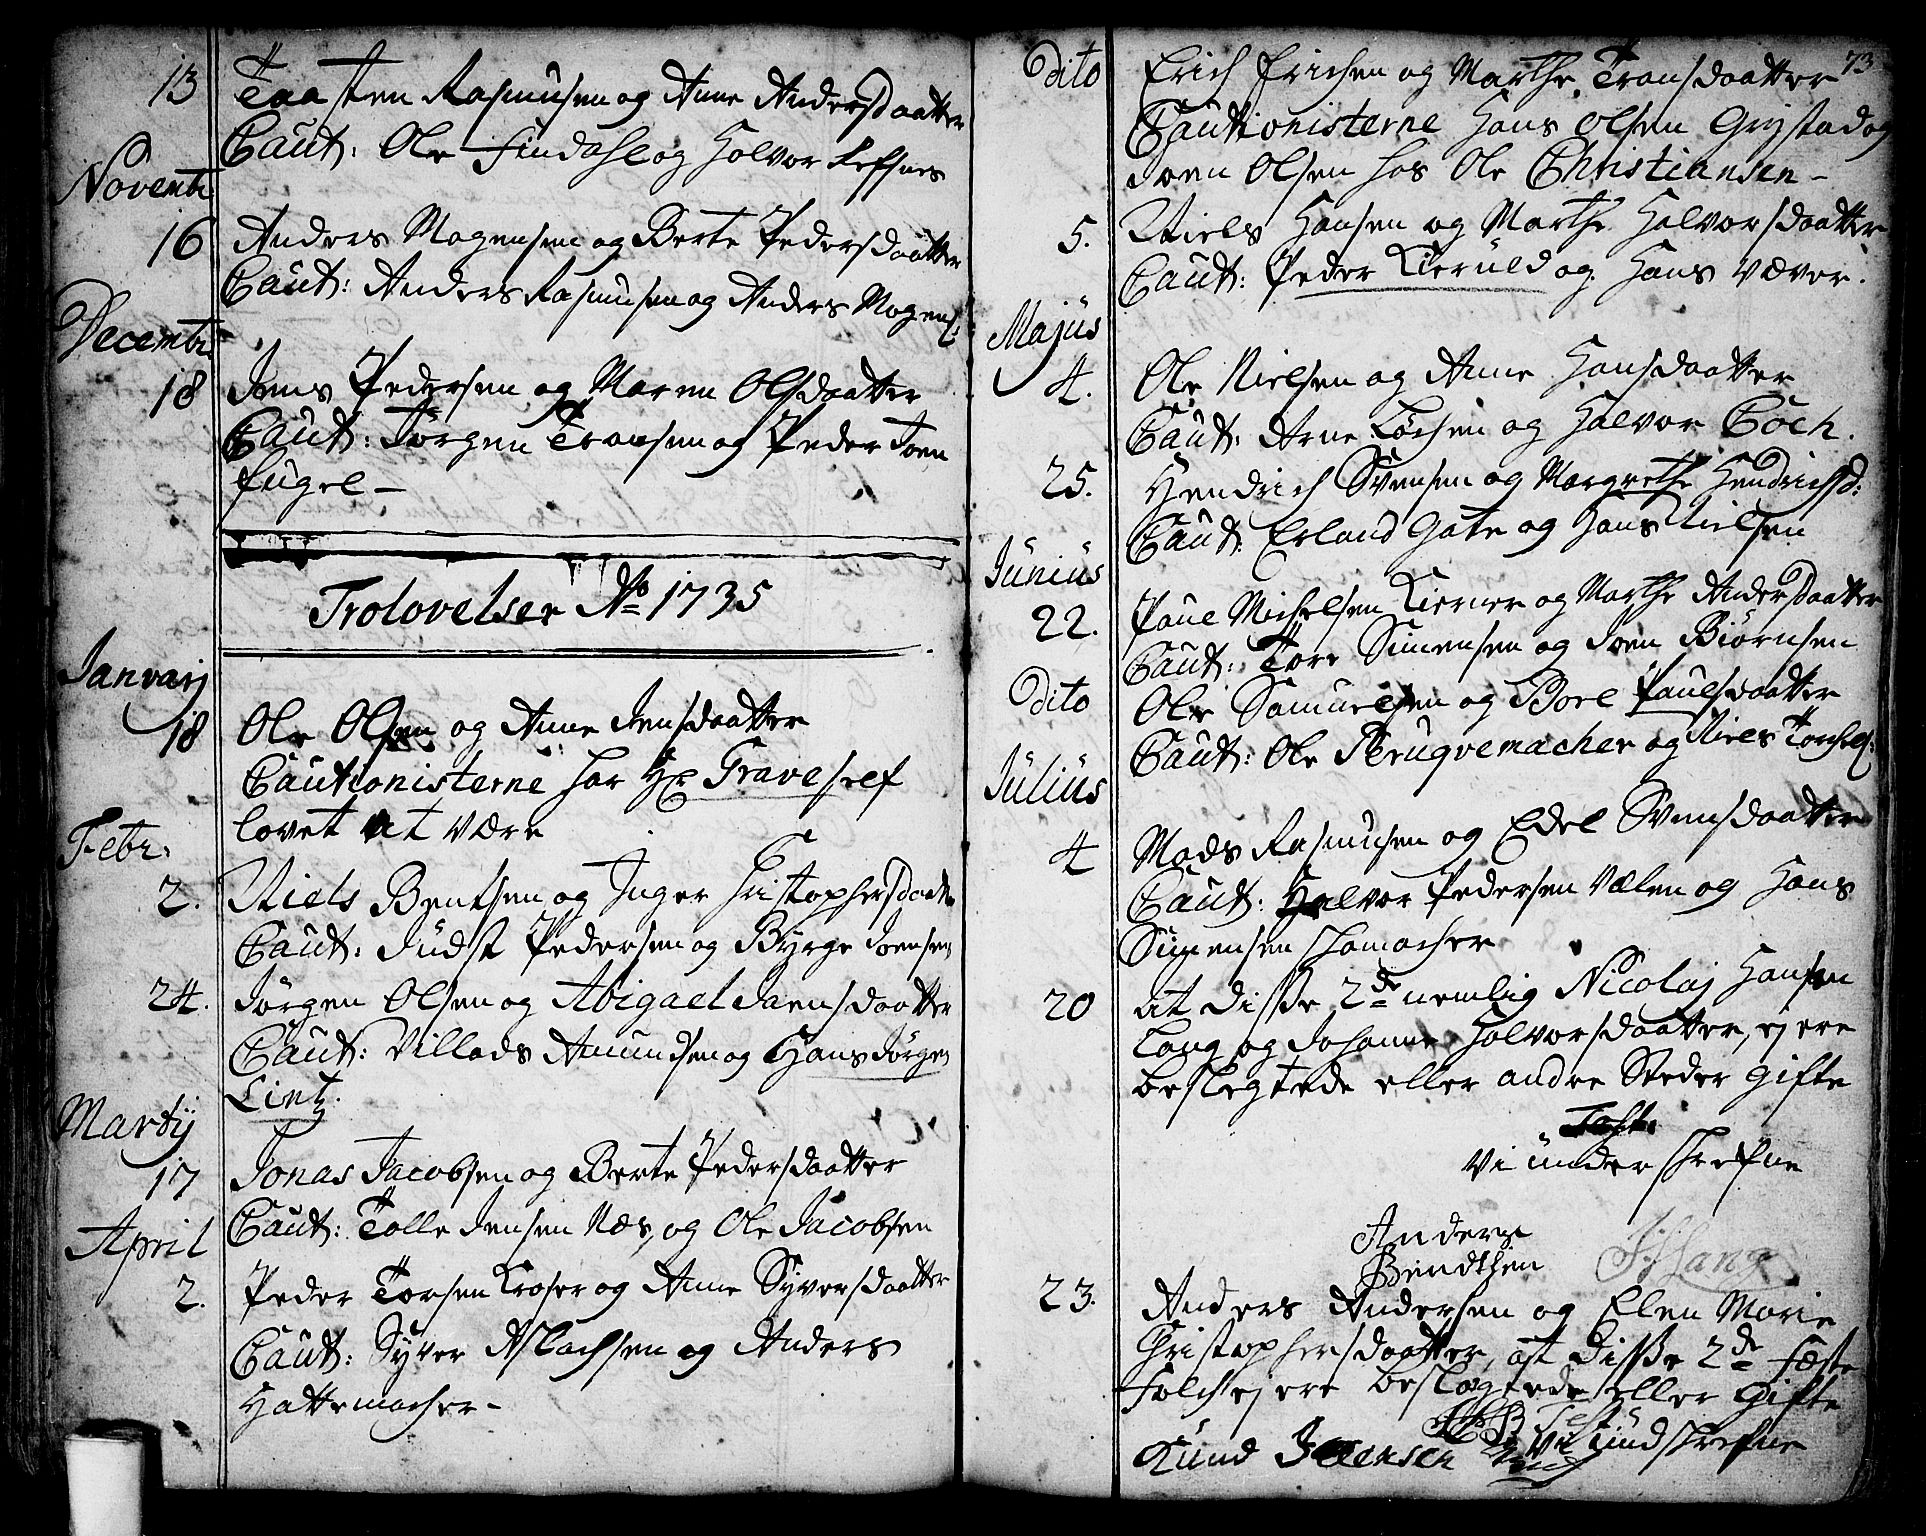 13 Taasten Rasmusen og Anne Andersdaatter
Caut: Ole Findahl og Halvor Leffnes
Novembr:
16 Anders Mogensen og Berte Pedersdaatter
Caut: Anders Rasmusen og Anders Mogens:
Decembr:
18 Jens Pedersen og Maren Olsdaatter
Caut: Jørgen Transen og Peder Joen
fugel –
Trolovelser No 1735
Janvarj
18 Ole Olsen og Anne Jensdaatter
Cautionisterne har Hr Grave self
lovet at være
Febr:
2. Niels Bentsen og Inger Christophersdaatter
Caut: Judst Pedersen og Byrge Joensen
24. Jørgen Olsen og Abigael Jaensdaatter
Caut: Villads Amundsen og Hans Jørgen
Lintz.
Martij
17 Jonas Jacobsen og Berte Pedersdaatter
Caut: Tolle Jensen Næs, og Ole Jacobsen
April
2. Peder Torsen Kroser og Anne Syversdaatter
Caut: Syver Aslachsen og Anders
Hattemacher –
73
Dito Erich Erichsen og Marthe Transdaatter
Cautionisterne Hans Olsen Grystad og
Joen Olsen hos Ole Christiansen –
5. Niels Hansen og Marthe Halvorsdaatter
Caut: Peder Kieruld og Hans Væver.
Majus
4. Ole Nielsen og Anne Hansdaatter
Caut: Arne Larsen og Halvor Coch.
25. Hendrich Svensen og Margrethe Hendrichsd:
Caut: Erland Gate og Hans Nielsen
Junius
22. Paul Michelsen Kierner og Marthe Andersdaatter
Caut: Tore Simensen og Joen Biørnsen
Dito Ole Samuelsen og Borel Paulsdaatter
Caut: Ole Peruqvemacher og Niels Torchels:
Julius
4 Mads Rasmusen og Edel Svensdaatter
Caut: Halvor Pedersen Vælen og Hans
Simensen skomacher
20 At disse 2de nemlig Nicolaj Hansen
Lang og Johanne Halvorsdaatter, ej ere
beslegtede eller andre Steder gifte
Test:
Vi under skrefne
Anders
Bendthsen
Lang
23. Anders Andersen og Elen Marie
Christophersdaatter, at disse 2de fæste
folch ej ere beslægtede eller gifte
Test
Vi und skrefne
Knud Joensen